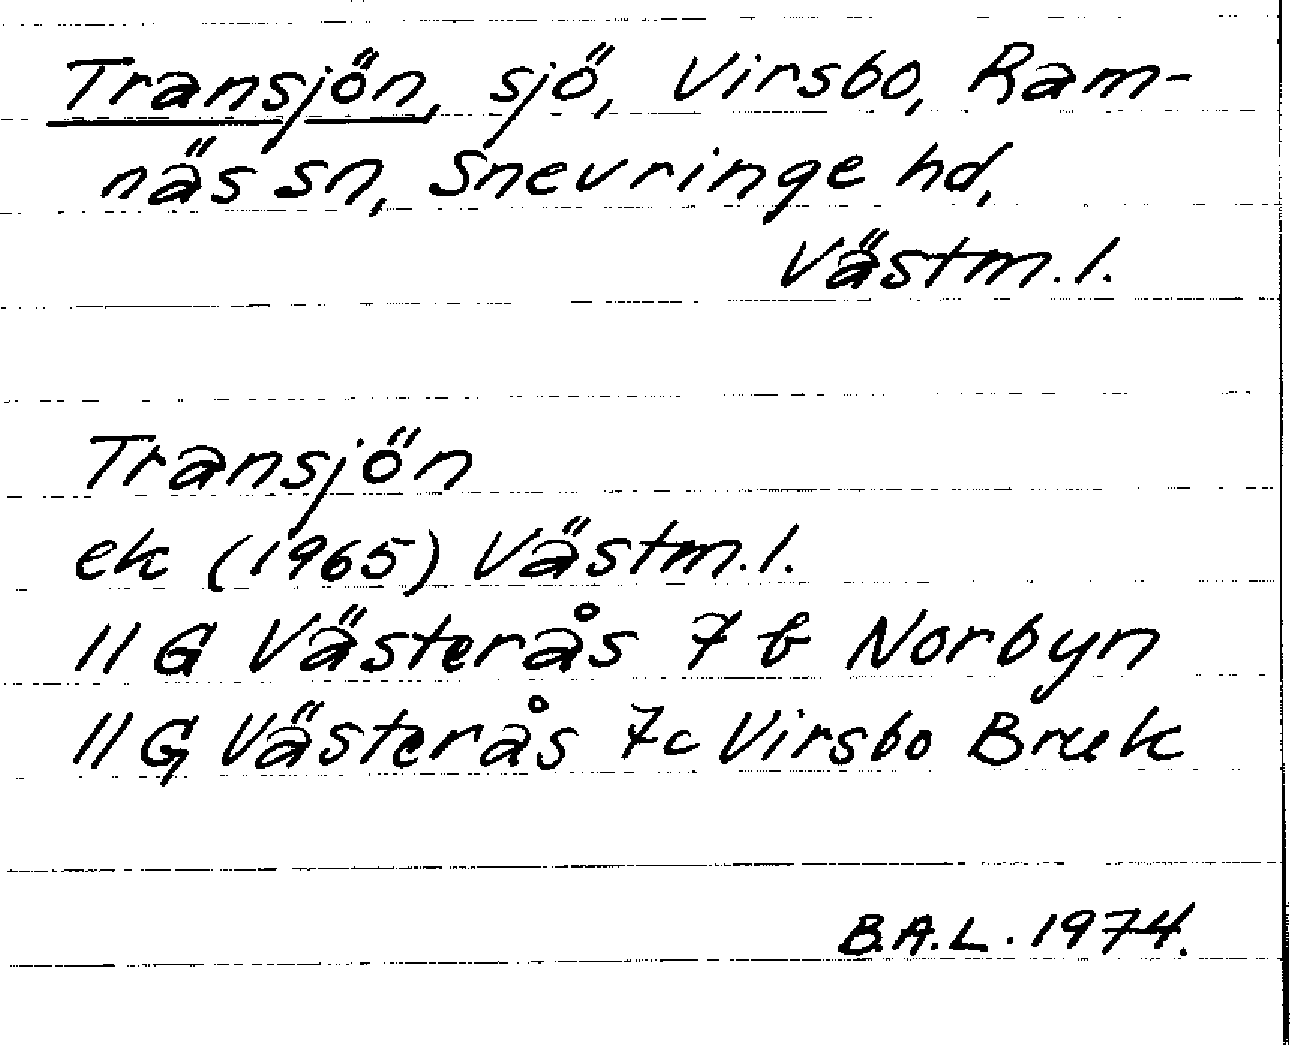 Transjön, sjö, Virsbo, Ram-
näs sn, Snevringe hd,
Västm. l.
Transjön
ek (1965) Västm. l.
11 G Västerås 7 b Norbyn
11 G Västerås 7c Virsbo Bruk
B.A.L. 1974.